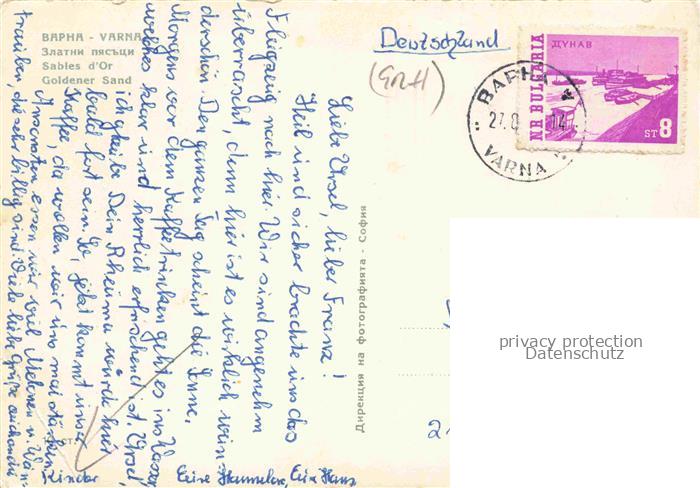 ВАРНА - VARNA
Златни пясъци
Sables d'Or
Goldener Sand
Deutschland
ДУНАВ
NR BULGARIA
ST 8
ВАРНА
VARNA
Дирекция на фотографията - София
privacy protection
Datenschutz
Liebe Ursel, lieber Franz!
Heil und sicher brachte uns das
Flugzeug nach hier. Wir sind angenehm
überrascht, denn hier ist es wirklich wun-
derschön. Den ganzen Tag scheint die Sonne.
Morgens vor dem Kaffetrinken geht es ins Wasser,
welches klar und herrlich erfrischend ist. Ursel,
ich glaube Dein Rheuma würde hier
bald fort sein. So, jetzt kommt unser
Kaffe, da wollen wir uns mal stärken.
Ansonsten essen wir viel Melonen u. Wein-
trauben, die sehr billig sind. Viele liebe Grüße
Kinder
Eure Hannelore, Euer Hans